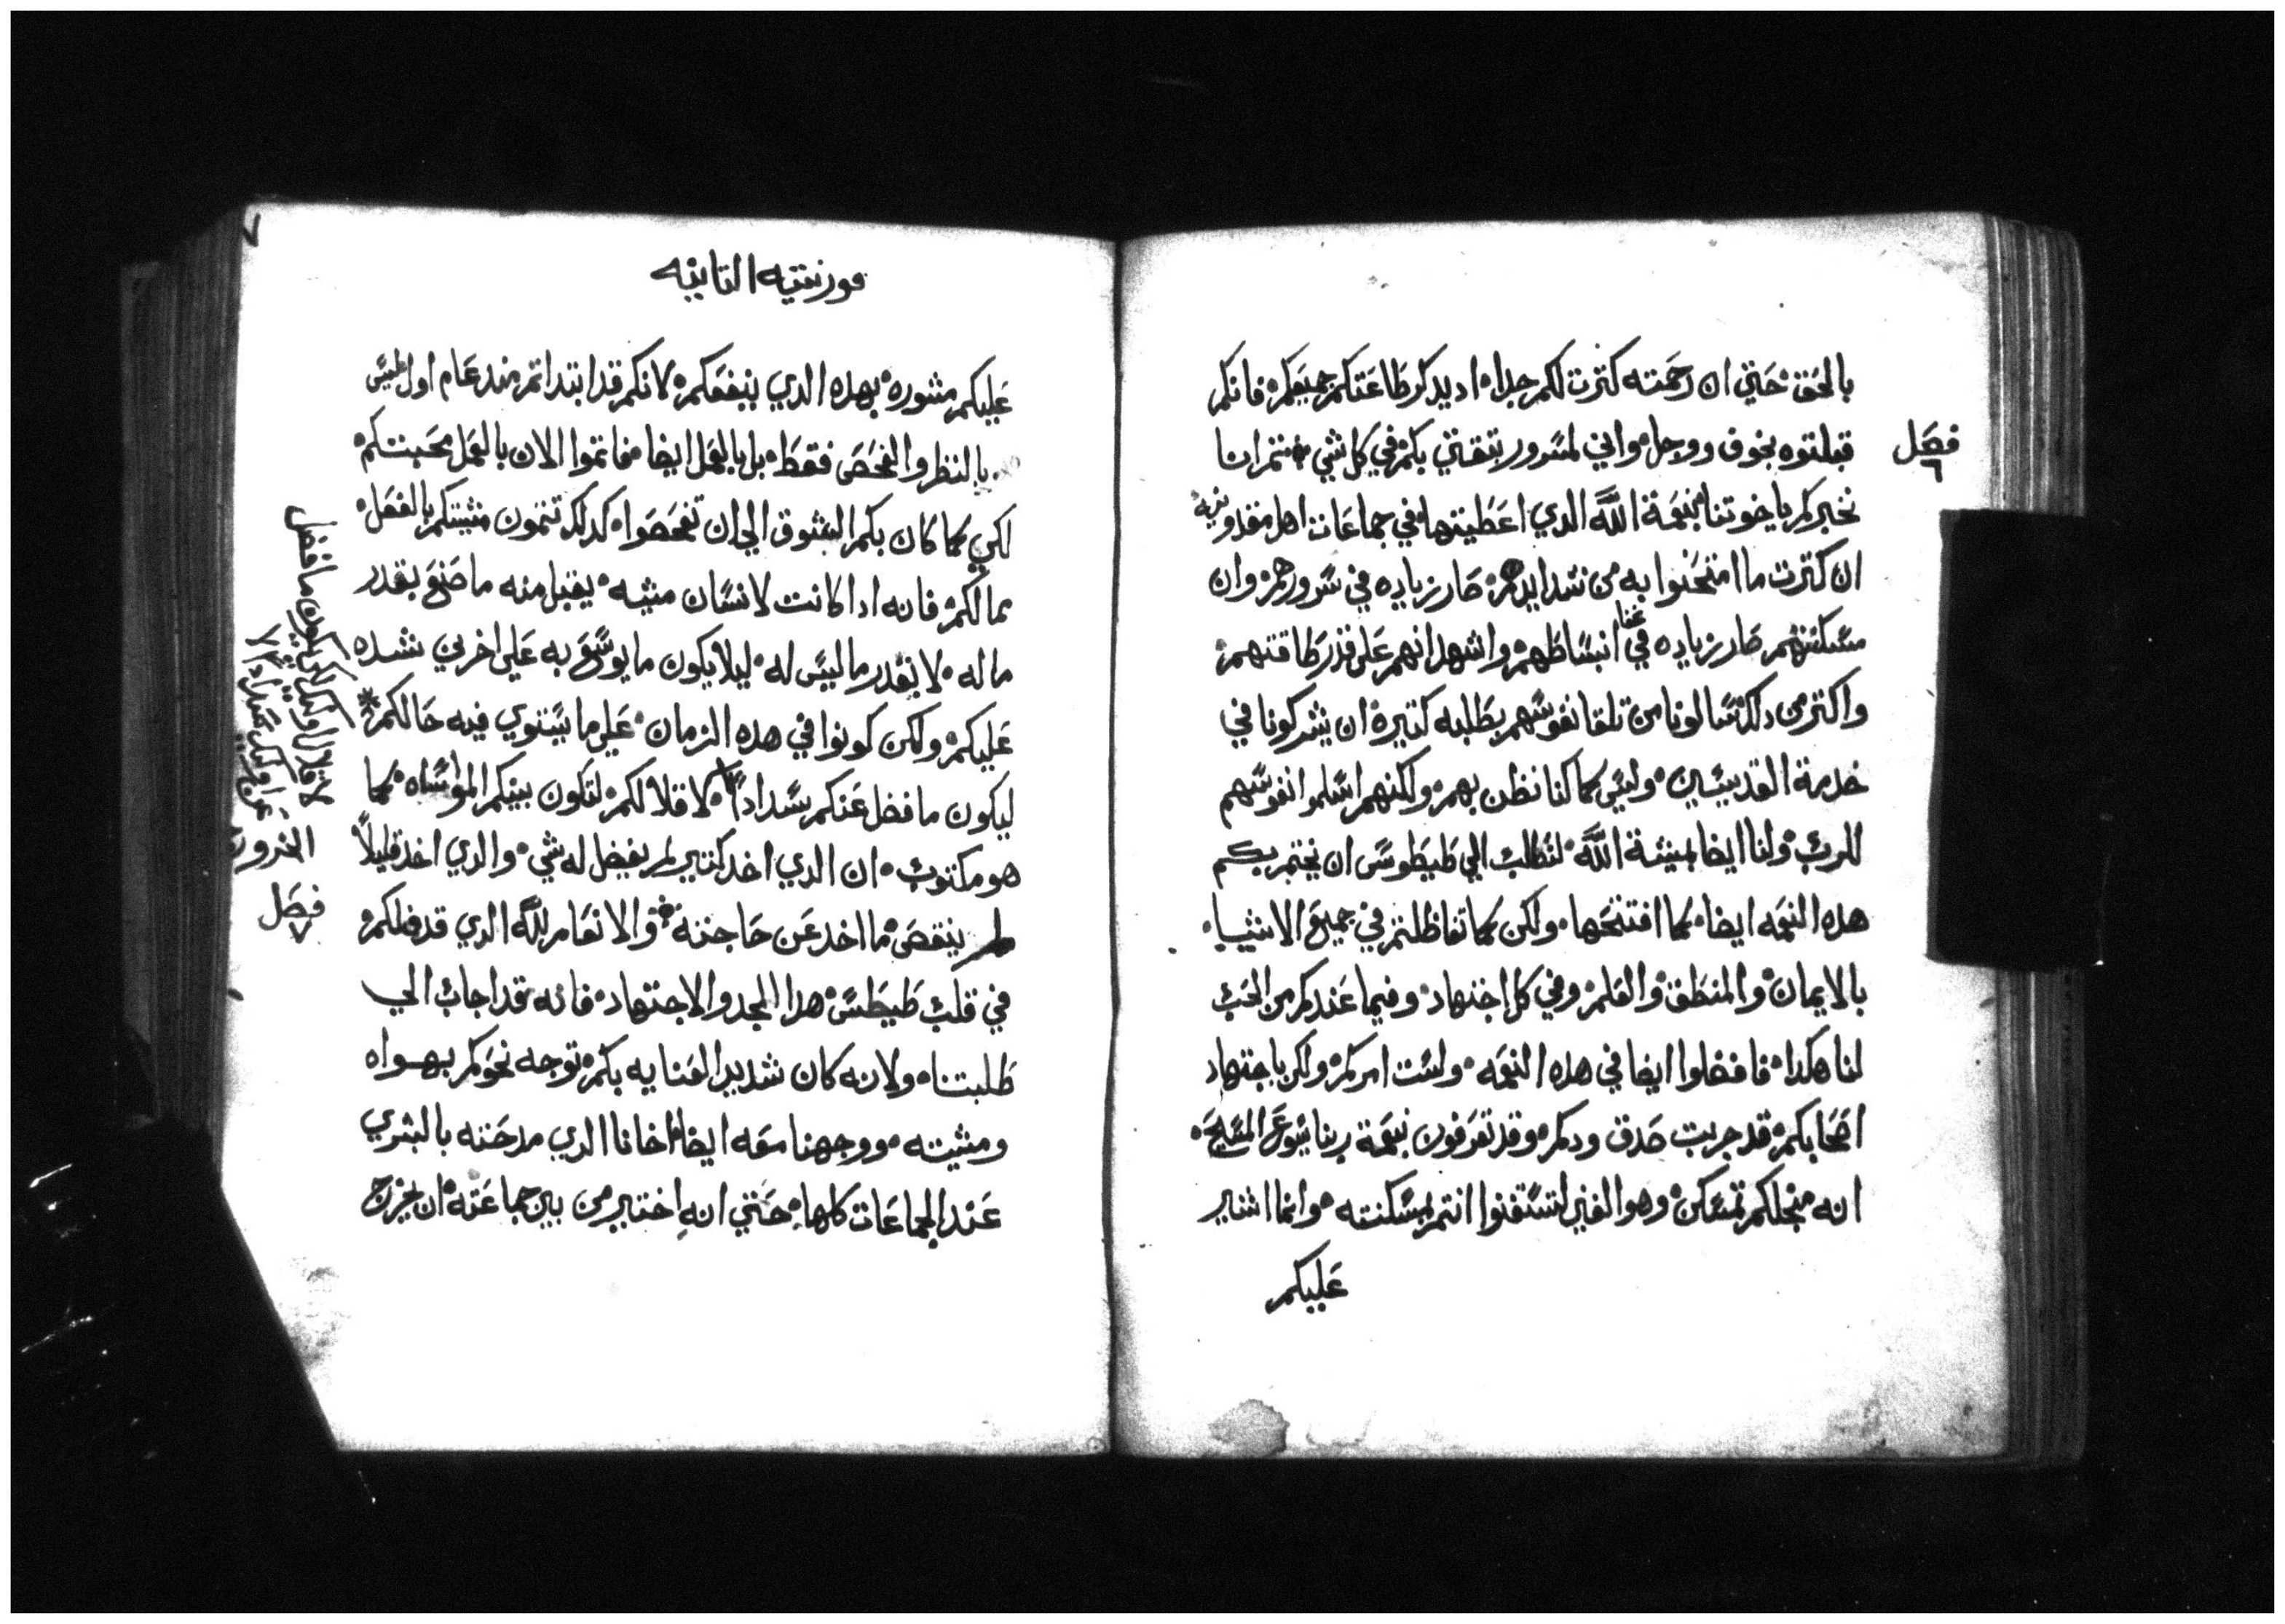 بالحق حتي ان رحمته كترت لكم جدا اديدكر طاعتكم جميعكم فانكم
فصل
٦
قبلتوه بخوف ووجل واني لمسرور بتقتي بكم في كل شي متم انا
نخبركم ياخوتنا بنعمة الله الدي اعطيتها في جماعات اهل مقدونيه
ان كترت ما امتحنوا به من شدايدهم صار زياده في سرورهم وان
مسكنتهم صار زياده في غنا انبساطهم واشهد انهم علي قدر طاقتهم
واكتر من دلك سالونا من تلقا نفوسهم بطلبه كتيرة ان يشركونا في
خدمة القديسين وليس كما كنا نظن بهم ولكنهم اسلموا نفوسهم
للرب ولنا ايضا بمشية الله لنطلب الي طيطوس ان يختم بكم
هده النعمه ايضا كما افتتحها ولكن كما تفاظلتم في جميع الاشيا
بالايمان والمنطق والعلم وفي كل اجتهاد وفيما عندكم من الحب
لنا هكدا فافضلوا ايضا في هده النعمه ولست امركم ولكن باجتهاد
اصحابكم قد جربت صدق ودكم وقد تعرفون نعمة ربنا يسوع المسيح
انه منجلكم تمسكن وهو الغني لتستغنوا انتم بمسكنته وانما اشير
عليكم
٧
قورنتيه التانيه
عليكم مشوره بهده الدي ينفعكم لانكم قد ابتداتم مند عام اول ليس
بالنظر والفحص فقط بل بالعمل ايضا فاتموا الان بالعمل محبتكم
لكي كما كان بكم الشوق الي ان تفحصوا كدلك تتمون مشيتكم بالفعل
بمالكم فانه ادا كانت لانسان مشيه يقبل منه ما صنع بقدر
ما له لا بقدر ما ليس له ليلا يكون ما يوسع به علي اخرين شده
عليكم ولكن كونوا في هده الزمان علي ما يستوي فيه حالكم
ليكون ما فضل عنكم سدادا لاقلالكم لتكون بينكم المواساه كما
هو مكتوب ان الدي اخد كتير لم يفضل له شي والدي اخد قليلا
لم ينقص ما اخد عن حاجته والانعام لله الدي قد
في قلب طيطس هدا الجد والاجتهاد فانه قد اجاب الي
طلبتنا ولانه كان شديد العنايه بكم توجه نحوكم بهواه
ومشيته ووجهنا معه ايضا اخانا الدي مدحته بالبشري
عند الجماعات كلها حتي انه اختير من بين جماعته ان يخرج
ما فضل
فصل
٧